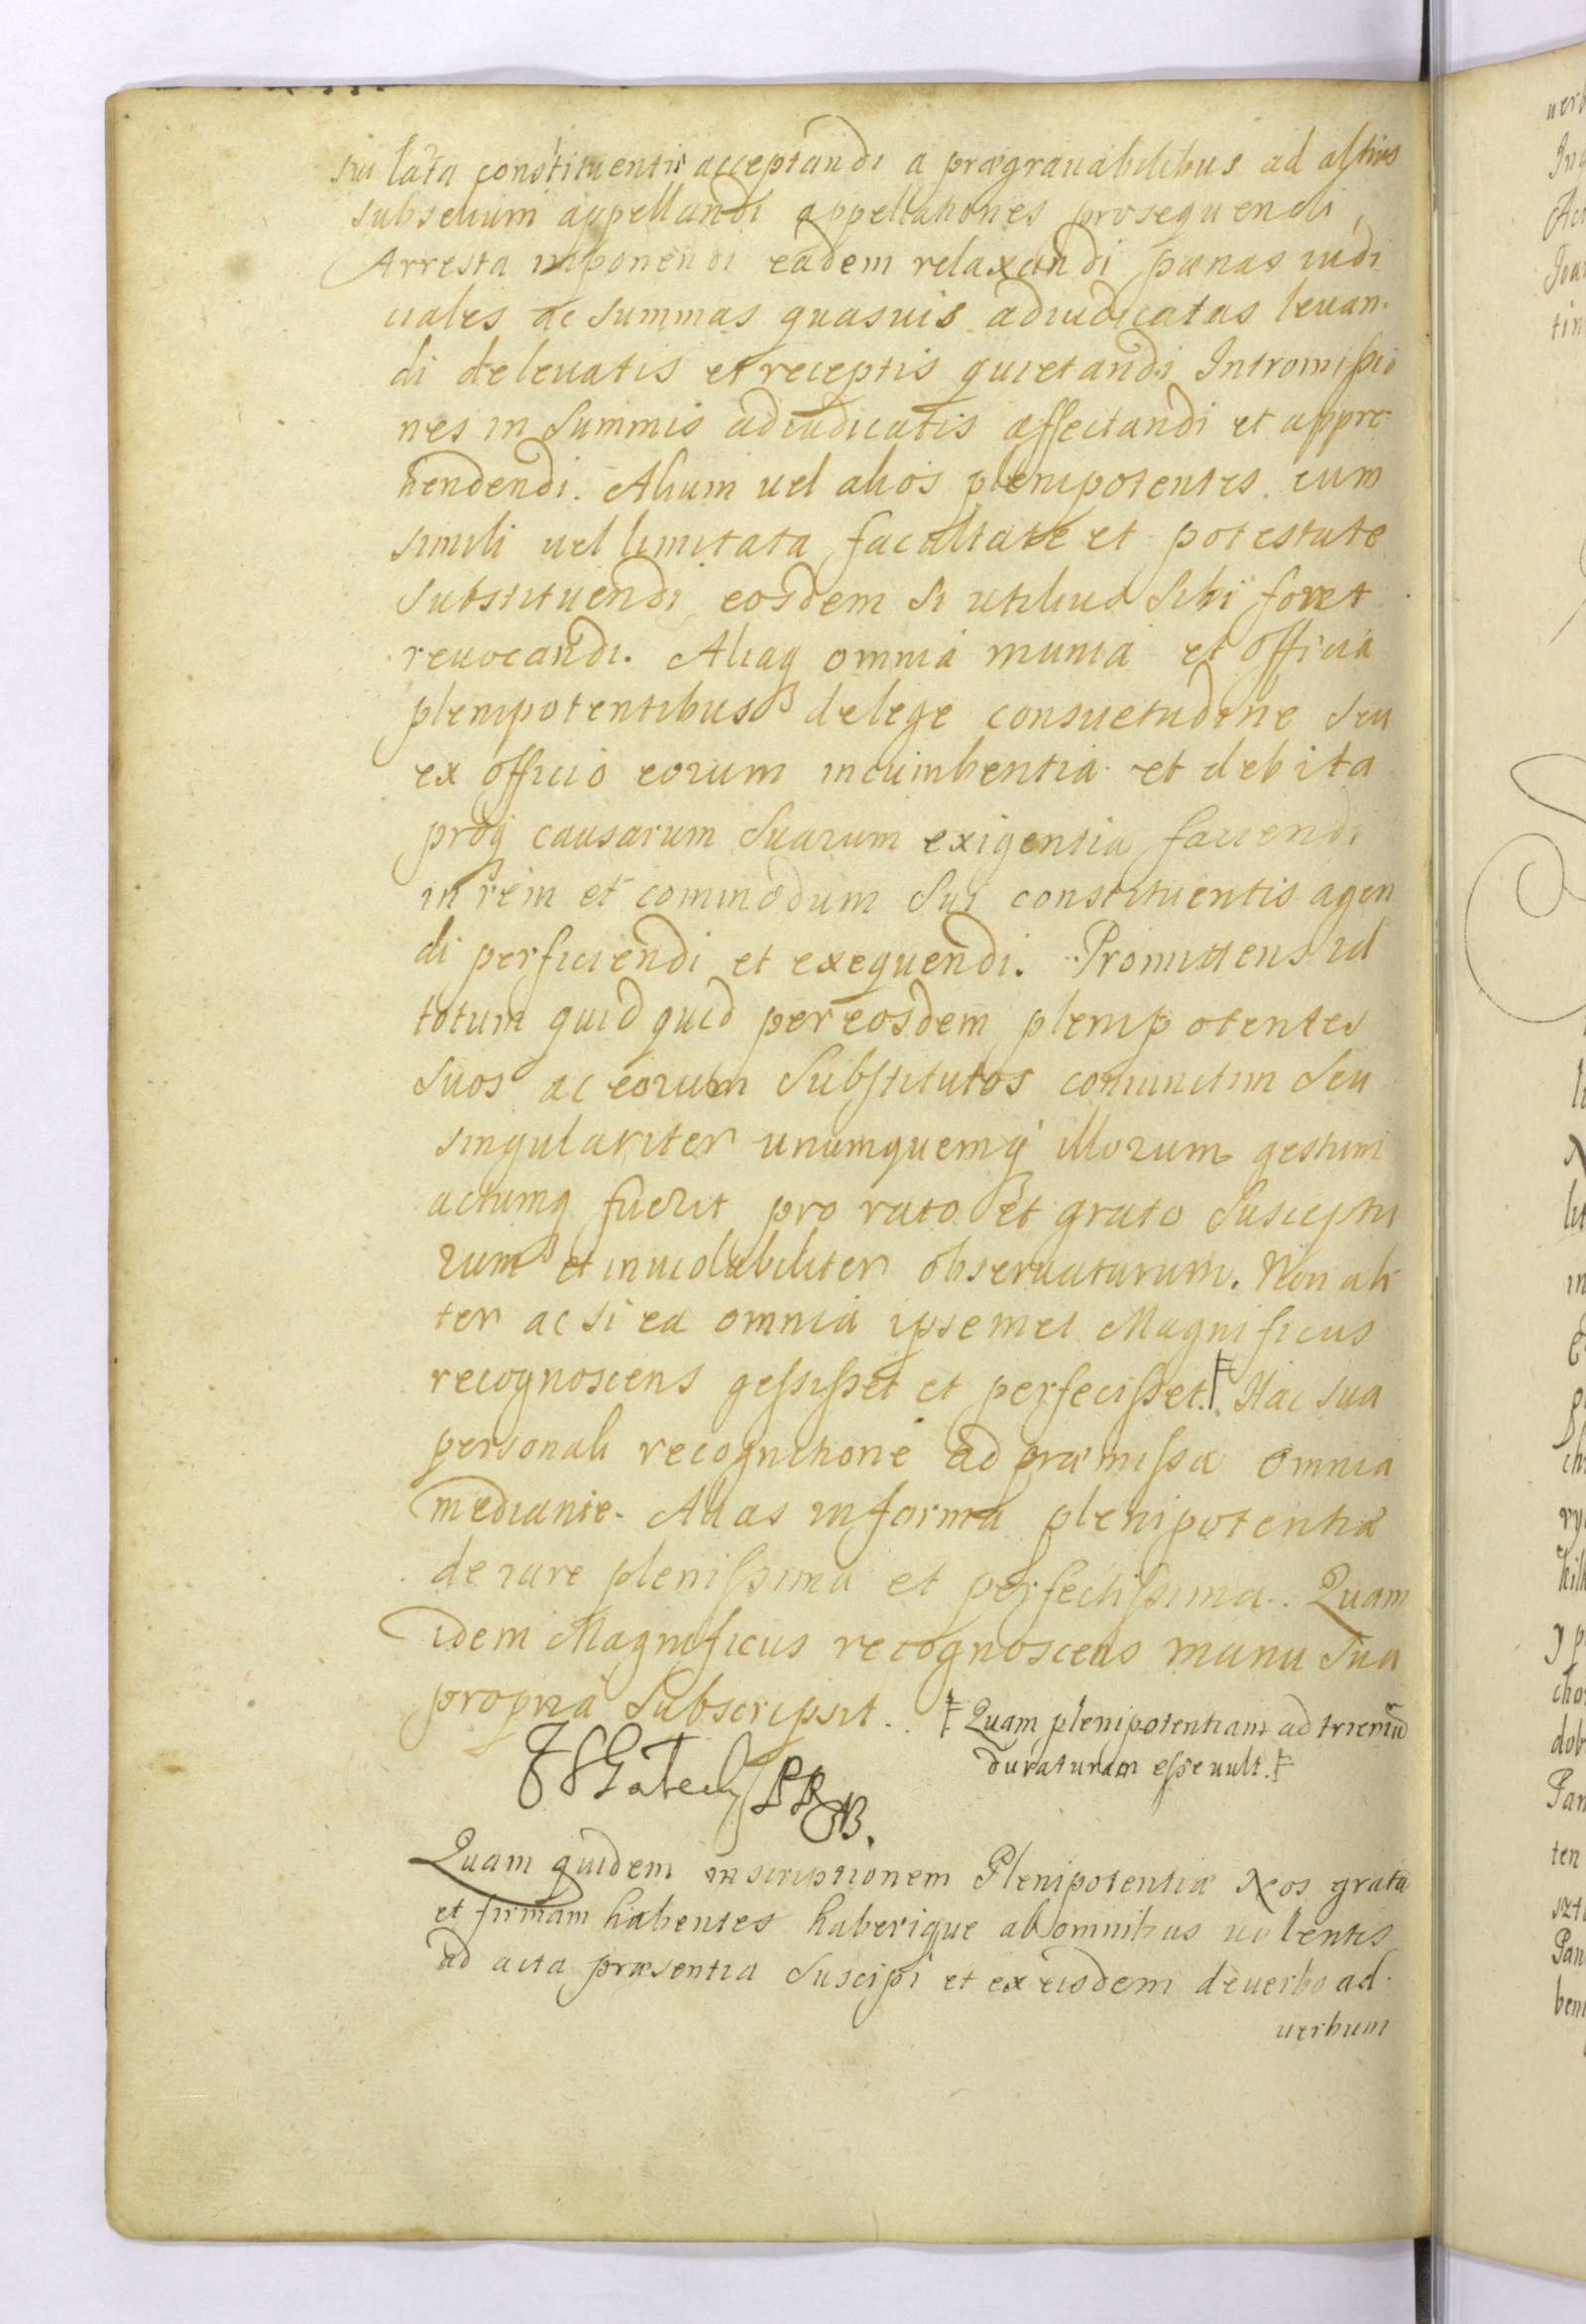 sui lata constituentis acceptandi a prægrauabilibus ad altius
subselium appellandi appellationes prosequendi
Arresta imponendi eadem relaxandi pænas iudi
ciales ac summas quasuis adiudicatas leuan-
di de leuatis et receptis quietandi Intromißio
nes in summis adiudicatis affectandi et appre-
hendendi. Alium uel alios plenipotentes cum
simili uel limitata facultate et potestate
substituendi eosdem si utilius sibi foret
reuocandi. Aliaq omnia munia et officia
plenipotentibus de lege consuetudine seu
ex officio eorum incumbentia et debita
proq causarum suarum exigentia faciendi
in rem et commodum sui constituentis agen
di perficiendi et exequendi. Promittens id
totum quidquid per eosdem plenipotentes
suos ac eorum substitutos coniunctim seu
singulariter unumquemq illorum gestum
actumq fuerit pro rato et grato susceptu
rum et inuiolabiliter obseruaturum. Non ali
ter ac si ea omnia ipsemet Magnificus
recognoscens geßißet et perfecißet.ǂ Hac sua
personali recognitione ad præmißa omnia
mediante. Alias in forma plenipotentiæ
de iure plenißima et perfectißima. Quam
idem Magnificus recognoscens manu sua
propria subscripsit.. ǂ Quam plenipotentiam ad trieniũ
duraturam eße uult.ǂ
Quam quidem inscriptionem Plenipotentiæ Nos gratã
et firmam habentes haberique ab omnibus uolentes
ad acta præsentia suscipi et ex eisdem de uerbo ad
uerbum